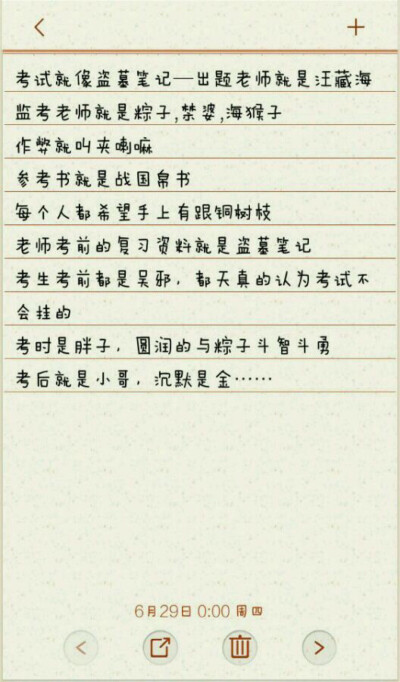 考试就像盗墓笔记—出题老师就是汪藏海
监考老师就是粽子,禁婆,海猴子
作弊就叫夹喇嘛
参考书就是战国帛书
每个人都希望手上有跟铜树枝
老师考前的复习资料就是盗墓笔记
考生考前都是吴邪，都天真的认为考试不
会挂的
考时是胖子，圆润的与粽子斗智斗勇
考后就是小哥，沉默是金……
6月29日 0:00 周四